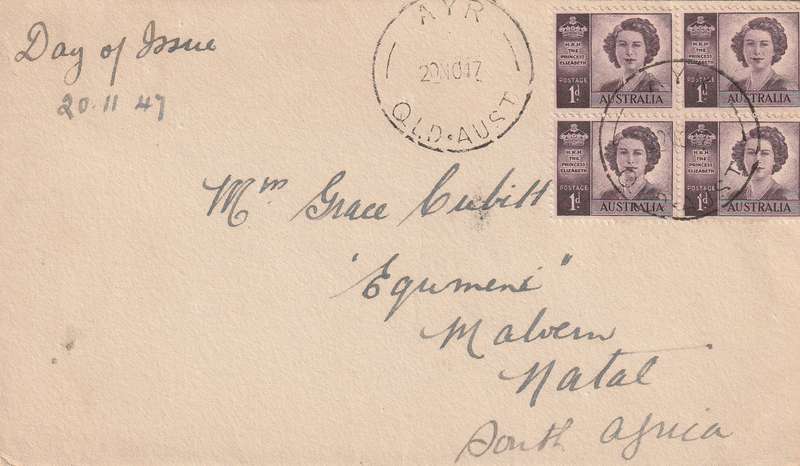 Day of Issue
20.11 47
AYR
20NO47
QLD.AUST
H.R.H. THE PRINCESS ELIZABETH
POSTAGE
1d
AUSTRALIA
H.R.H. THE PRINCESS ELIZABETH
POSTAGE
1d
AUSTRALIA
H.R.H. THE PRINCESS ELIZABETH
POSTAGE
1d
AUSTRALIA
H.R.H. THE PRINCESS ELIZABETH
POSTAGE
1d
AUSTRALIA
Grace Cubitt
"Equmeni"
Malvern
Natal
South Africa